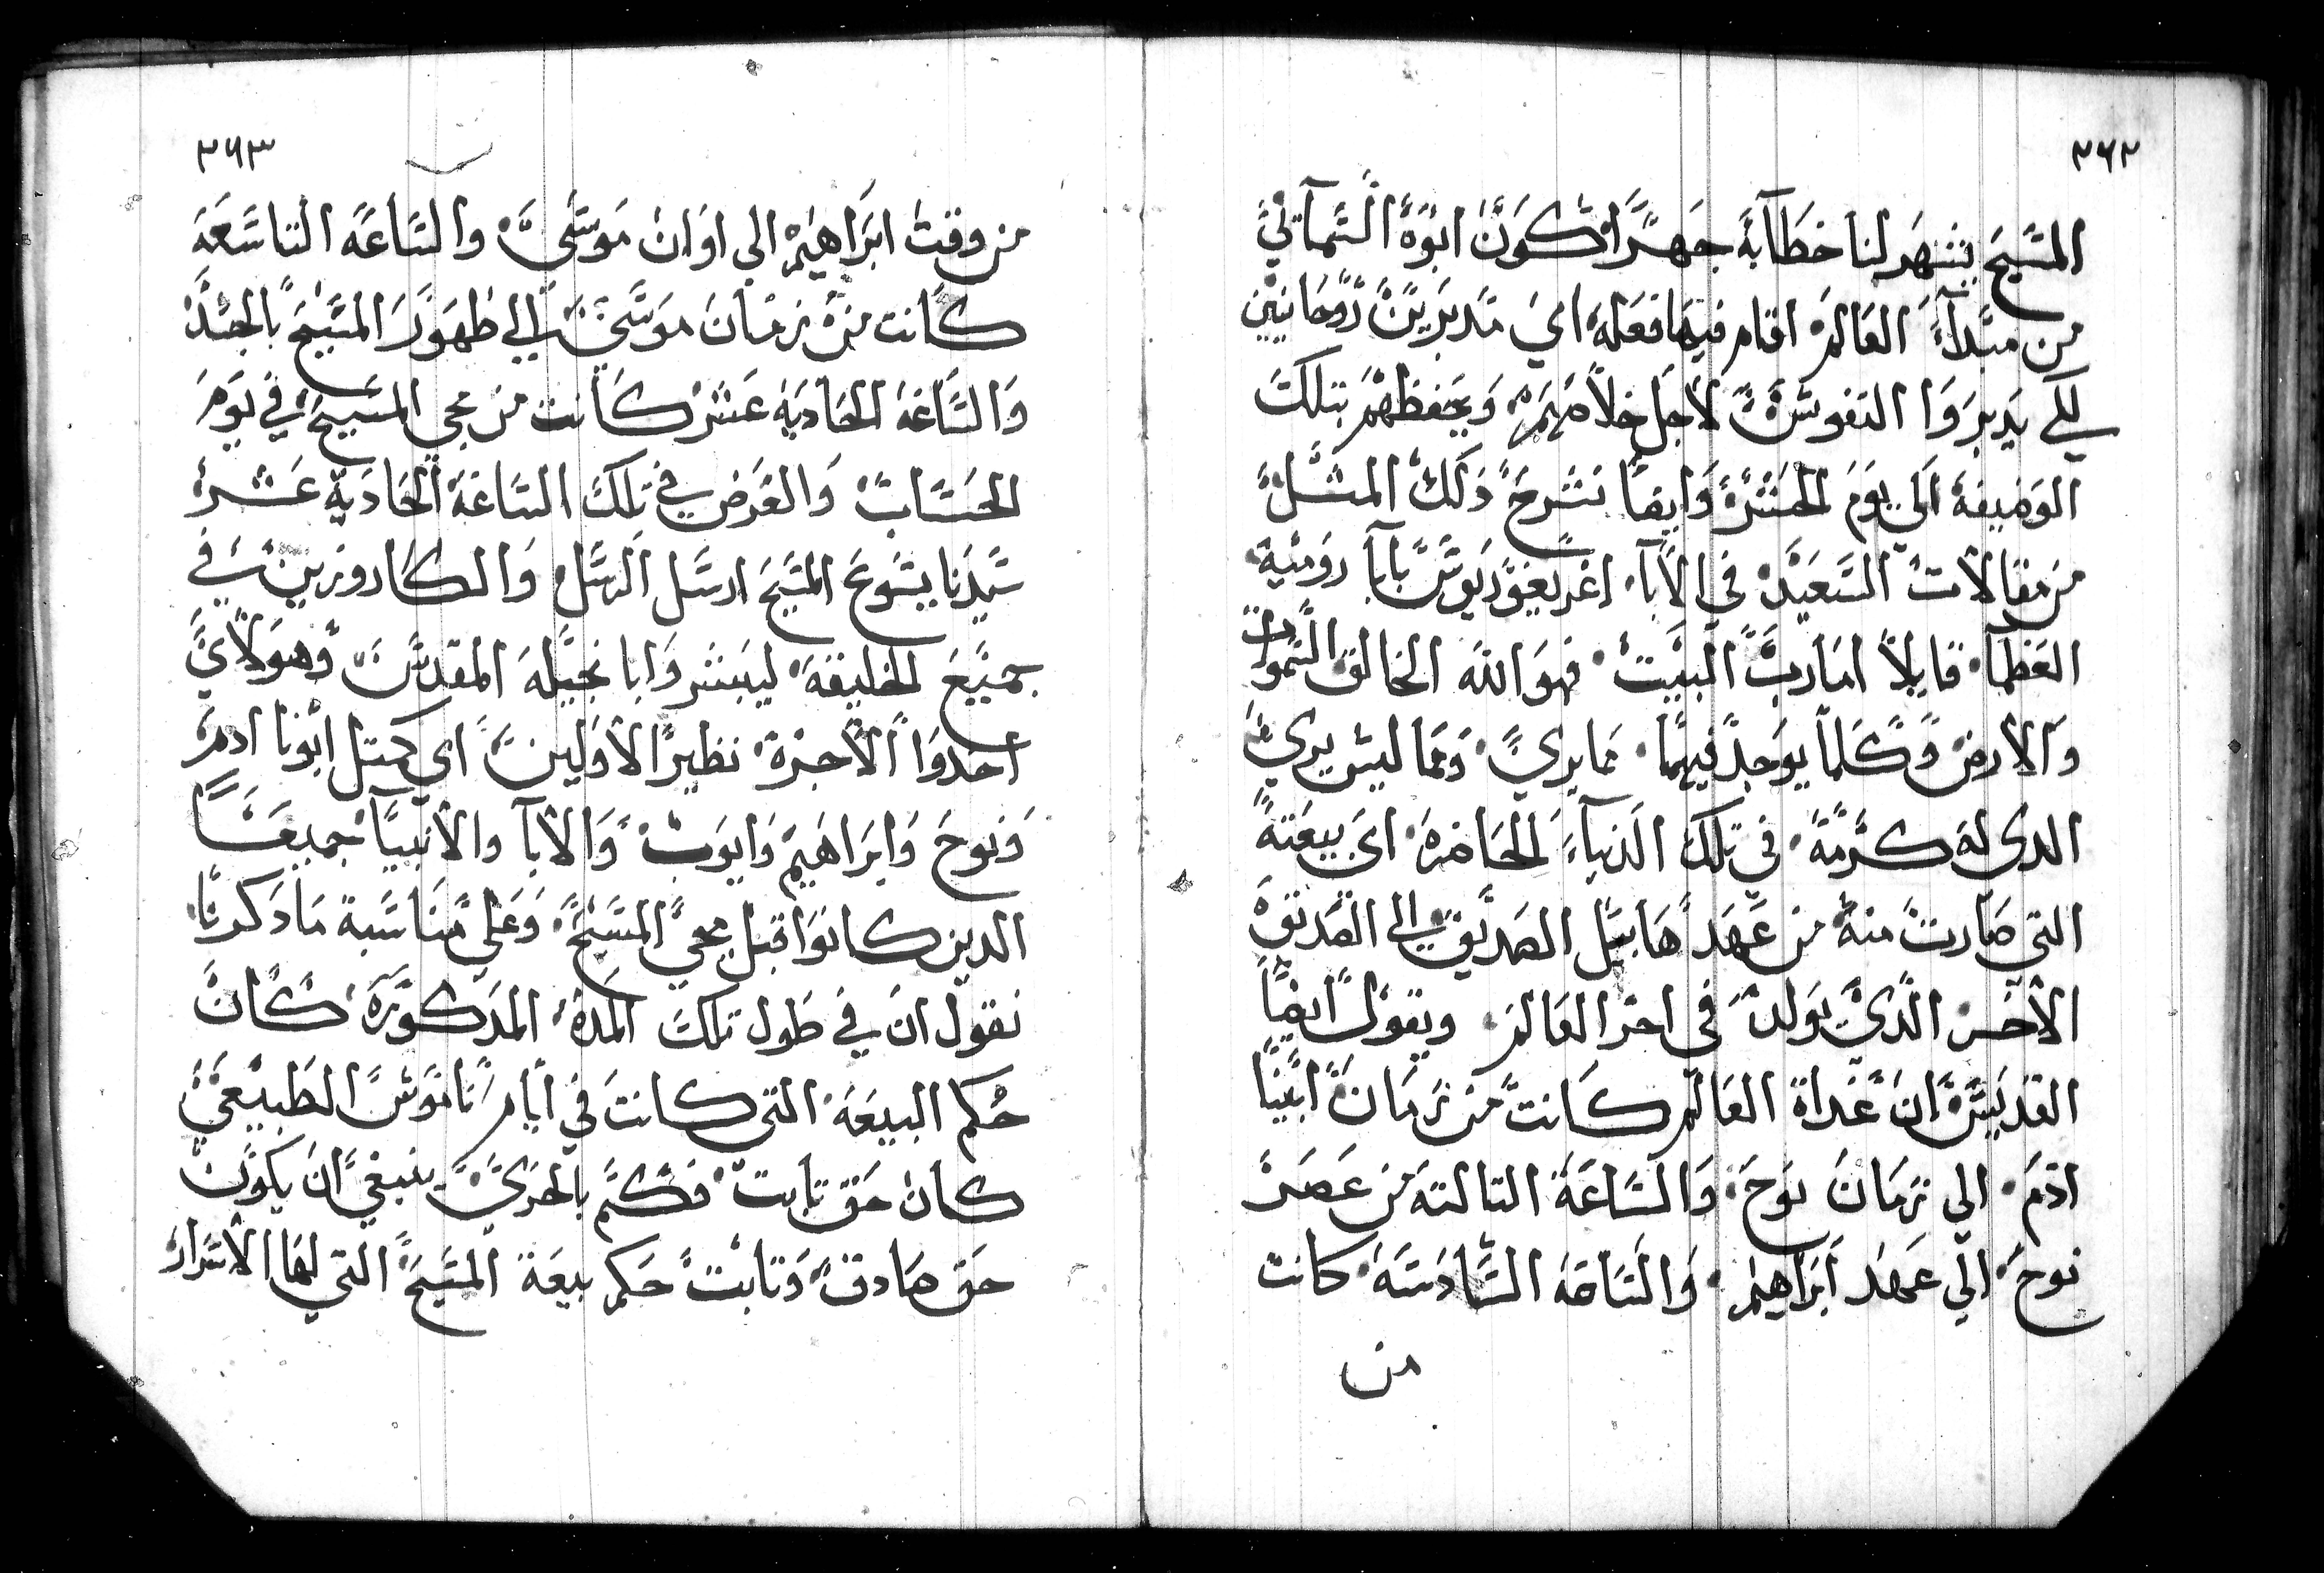 ٣٦٢
المسيح يشهد لنا خطابة جهرا كون ابوه السماتي
من مبدآء العالم اقام فيها فعله اي مدبرين روحانيين
لكي يدبروا النفوس لاجل خلاصهم ويحفظهم بتلك
الوضيفة الي يوم الحشر وايضا نشرح دلك المثل
من مقالات السعيد في الابآء اغريغوريوس بابا رومية
العظما قايلا اما رب البيت فهو الله الخالق السموات
والارض وكلما يوجد فيهما مما يري ومما ليس يري
الدي له كرمة في تلك الدنيآء الحاضرة اي بيعته
التي صارت منه من عهد هابيل الصديق الي الصديق
الاخر الدي يولد في اخر العالم ويقول ايضا
القديس ان غداة العالم كانت من زمان ابينا
ادم الي زمان نوح والساعة التالته من عصر
نوح الي عهد ابراهيم والساعة السادسة كانت
من
٣٦٣
من وقت ابراهيم الي اوان موسي والساعة التاسعة
كانت من زمان موسي الي ظهور المسيح بالجسد
والساعة الحادية عشر كانت من مجي المسيح في يوم
الحساب والغرض في تلك الساعة الحادية عشر
سيدنا يسوع المسيح ارسل الرسل والكاروزين في
جميع الخليقة ليبشروا بانجيله المقدس وهولاي
اخدوا الاجرة نظير الاولين اي كمتل ابونا ادم
ونوح وابراهيم وايوب والابآ والانبيآ جميعا
الدين كانوا قبل مجي المسيح وعلي مناسبة ما دكرنا
نقول ان في طول تلك المدة المدكورة كان
حكم البيعة التي كانت في ايام ناموس الطبيعي
كان حق تابت فكم بالحري ينبغي ان يكون
حق صادق وتابت حكم بيعة المسيح التي لها الاسرار